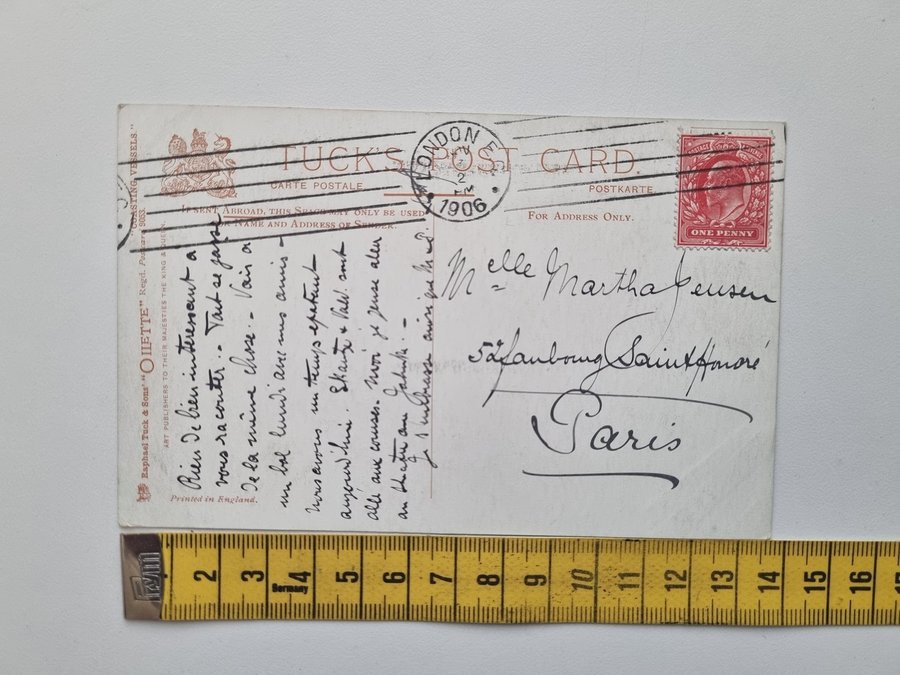 TUCK'S POST CARD.
CARTE POSTALE.
POSTKARTE.
IF SENT ABROAD, THIS SPACE MAY ONLY BE USED
NAME AND ADDRESS OF SENDER.
FOR ADDRESS ONLY.
LONDON
2
1906
ONE PENNY
Melle Martha Jensen
52 faubourg Saint Honoré
Paris
Rien de bien interessant à
vous raconter. - Tout se passe
de la même chose. - Vais à
un bal lundi avec mes amis -
Nous avons un temps epatant
aujourd'hui. sont
allé aux courses. Moi je pense aller
au theatre
Raphael Tuck & Sons' "OILETTE" Regd. Postcard 9083. "COASTING VESSELS."
ART PUBLISHERS TO THEIR MAJESTIES THE KING & QUEEN.
Printed in England.
Germany
2 3 4 5 6 7 8 9 10 11 12 13 14 15 16